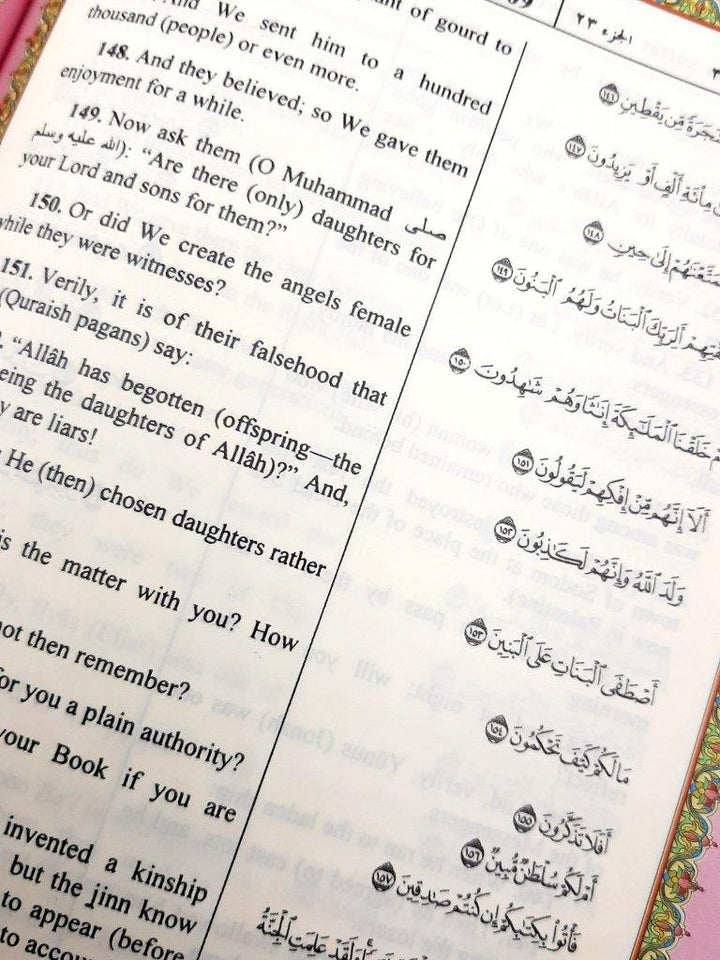 الجزء ٢٣
of gourd to
And We sent him to a hundred
thousand (people) or even more.
148. And they believed; so We gave them
enjoyment for a while.
149. Now ask them (O Muhammad صلى
الله عليه وسلم): “Are there (only) daughters for
your Lord and sons for them?”
150. Or did We create the angels female
while they were witnesses?
151. Verily, it is of their falsehood that
(Quraish pagans) say:
“Allâh has begotten (offspring—the
being the daughters of Allâh)?” And,
are liars!
He (then) chosen daughters rather
is the matter with you? How
not then remember?
for you a plain authority?
your Book if you are
invented a kinship
but the jinn know
to appear (before
to
شَجَرَةً مِّن يَقْطِينٍ ١٤٦
مِائَةِ أَلْفٍ أَوْ يَزِيدُونَ ١٤٧
إِلَىٰ حِينٍ ١٤٨
أَلِرَبِّكَ ٱلْبَنَاتُ وَلَهُمُ ٱلْبَنُونَ ١٤٩
خَلَقْنَا ٱلْمَلَٰٓئِكَةَ إِنَٰثًا وَهُمْ شَٰهِدُونَ ١٥٠
أَلَآ إِنَّهُم مِّنْ إِفْكِهِمْ لَيَقُولُونَ ١٥١
وَلَدَ ٱللَّهُ وَإِنَّهُمْ لَكَٰذِبُونَ ١٥٢
أَصْطَفَى ٱلْبَنَاتِ عَلَى ٱلْبَنِينَ ١٥٣
مَا لَكُمْ كَيْفَ تَحْكُمُونَ ١٥٤
أَفَلَا تَذَكَّرُونَ ١٥٥
أَمْ لَكُمْ سُلْطَٰنٌ مُّبِينٌ ١٥٦
فَأْتُوا۟ بِكِتَٰبِكُمْ إِن كُنتُمْ صَٰدِقِينَ ١٥٧
وَلَقَدْ عَلِمَتِ ٱلْجِنَّةُ